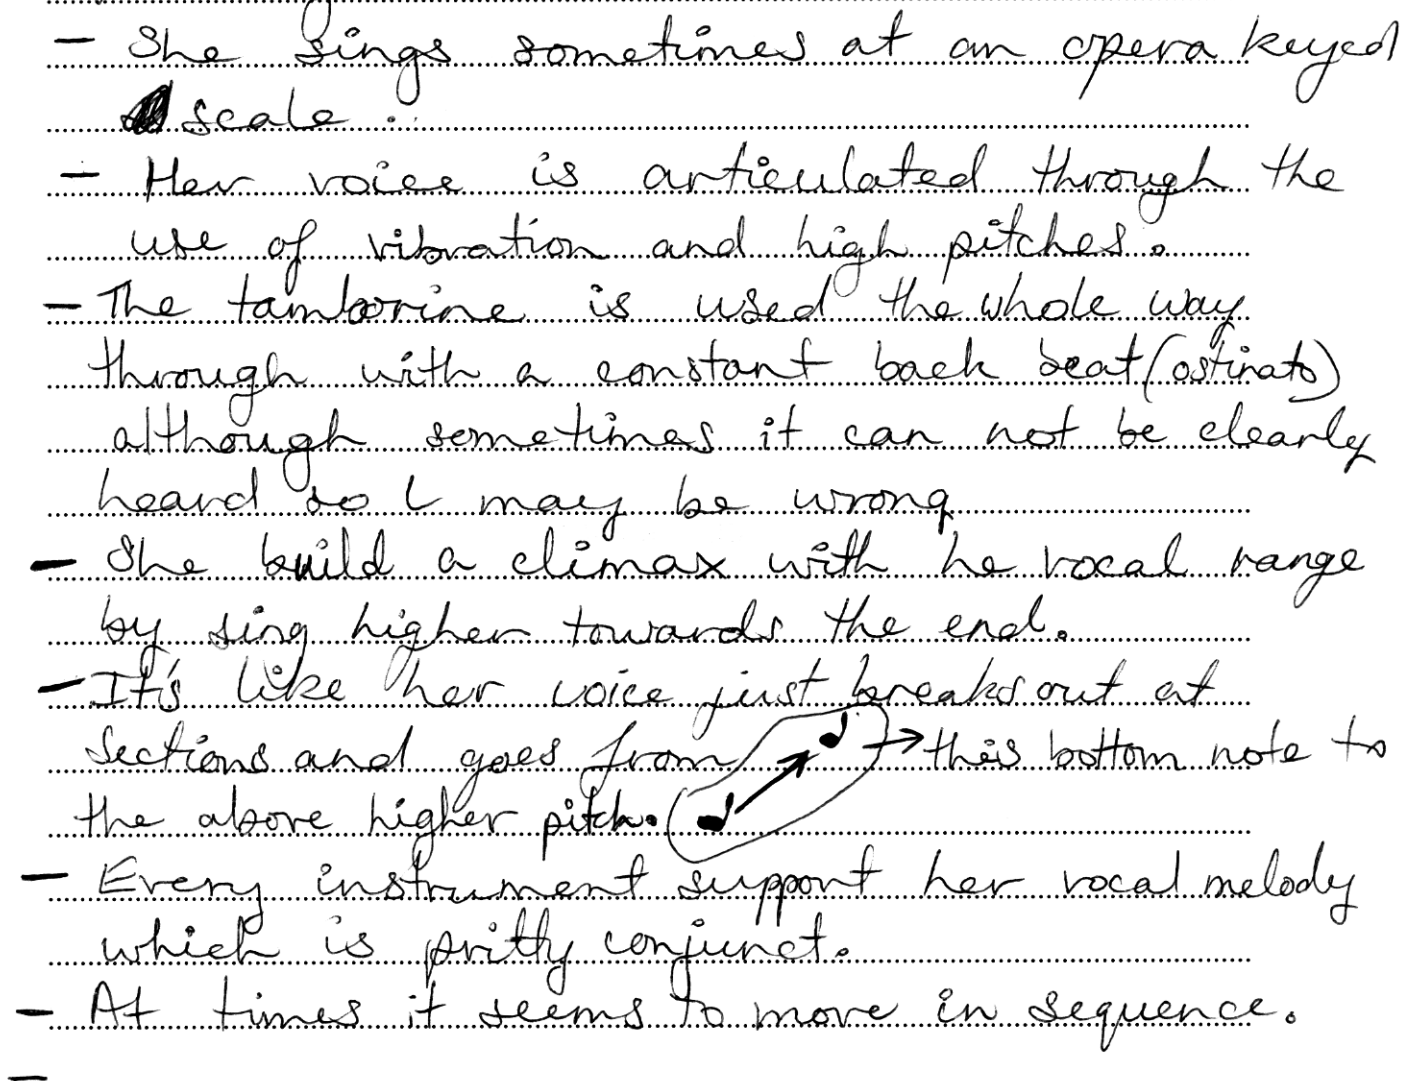 - She sings sometimes at an opera keyed
scale.
- Her voice is articulated through the
use of vibration and high pitches.
- The tamborine is used the whole way
through with a constant back beat (ostinato)
although sometimes it can not be clearly
heard so I may be wrong
- She build a climax with he vocal range
by sing higher towards the end.
- It's like her voice just breaks out at
sections and goes from → this bottom note to
the above higher pitch.
- Every instrument support her vocal melody
which is pritty conjunct.
- At times it seems to move in sequence.
-